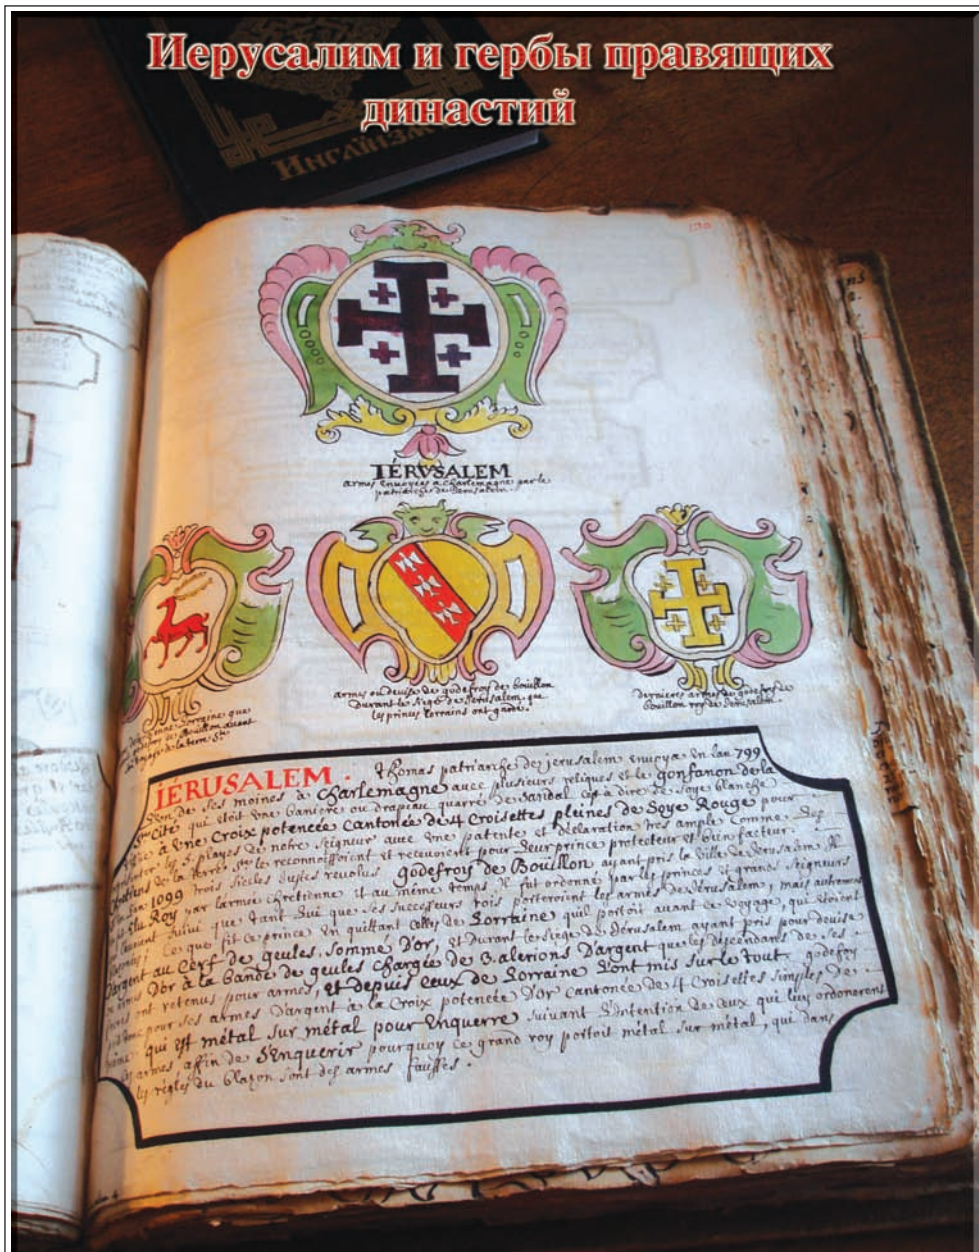 Иерусалим и гербы правящих
династий
Инглиизм
130
IÉRVSALEM
armes envoyees a charlemagne par le
patriarche de Jerusalem.
armes ou devise de godefroy de bouillon
Durant le siege de Jerusalem, que
les princes lorrains ont gardé.
dernieres armes de godefroy de
bouillon roy de Jerusalem.
Lorraine que
de Bouillon avant
voyage a la terre Ste
IÉRUSALEM. Thomas patriarche de jerusalem envoya en lan 799
de ses moines à Charlemagne avec plusieurs reliques et le gonfanon de la
Ste Cité qui etoit une baniere ou drapiau quarré de sandal cest à dire de soye blanche
à une Croix potencée cantonée de 4 Croisettes pleines de Soye Rouge pour
les 5. playes de notre seigneur avec une patente et déclaration tres ample Comme
de la terre Ste le reconnoissoient et recevoient pour leur prince protecteur et bien facteur.
lan 1099 trois siecles justes revolus godefroy de Bouillon ayant pris la ville de Jerusalem
Elu Roy par larmée chretienne et au même temps il fut ordonné par les princes et grands seigneurs
que tant lui que ses successeurs rois porteroient les armes de Jérusalem, mais autrement
Ce que fit ce prince en quittant celles de Lorraine quil portoit avant ce voyage, qui etoient
D'argent au Cerf de geules, sommé D'or, et Durant le siege de Jérusalem ayant pris pour devise
D'or à la bande de geules chargée de 3. alerions D'argent que les descendans de ses
ont retenus pour armes, et depuis ceux de Lorraine L'ont mis sur le tout. godefroy
pour ses armes D'argent à la Croix potencée D'or cantonée de 4 Croisettes simples de
même, qui est métal sur métal pour Enquerre suivant L'intention de ceux qui luy ordonerent
armes, affin de S'enquerir pourquoy ce grand roy portoit métal sur métal, qui dans
les règles du blazon sont des armes fausses.